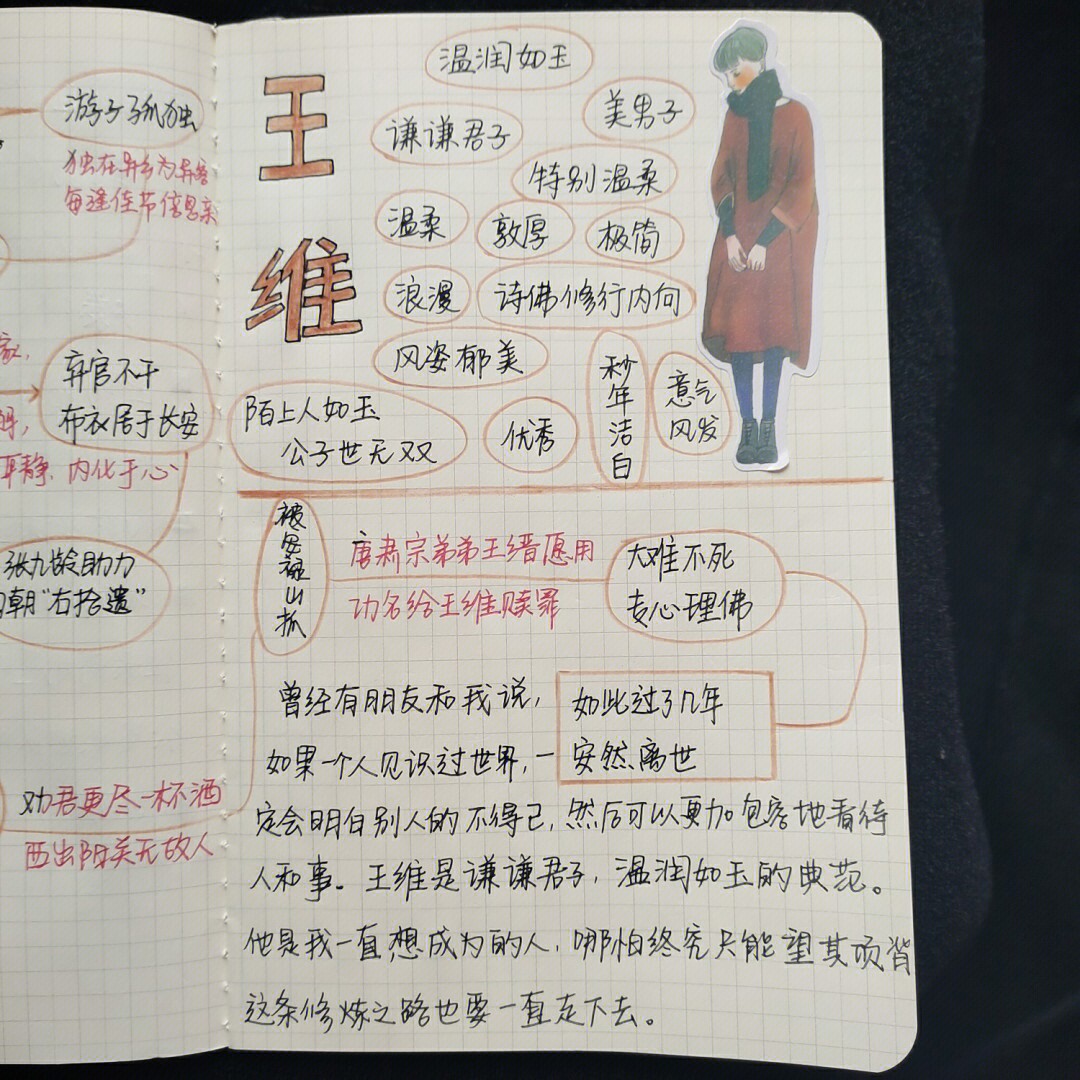 游子孤独
独在异乡为异客
每逢佳节倍思亲
家,
弃官不干
布衣居于长安
耳静、内化于心
张九龄助力
朝“右拾遗”
劝君更尽一杯酒
西出阳关无故人
王维
温润如玉
美男子
谦谦君子
特别温柔
温柔
敦厚
极简
浪漫
诗佛修行内向
风姿郁美
秒年洁白
意气
风发
陌上人如玉
公子世无双
优秀
被安禄山抓
唐肃宗弟弟王缙愿用
功名给王维赎罪
大难不死
专心理佛
如此过了几年
安然离世
曾经有朋友和我说,
如果一个人见识过世界,一
定会明白别人的不得已,然后可以更加包容地看待
人和事。王维是谦谦君子,温润如玉的典范。
他是我一直想成为的人,哪怕终究只能望其项背
这条修炼之路也要一直走下去。